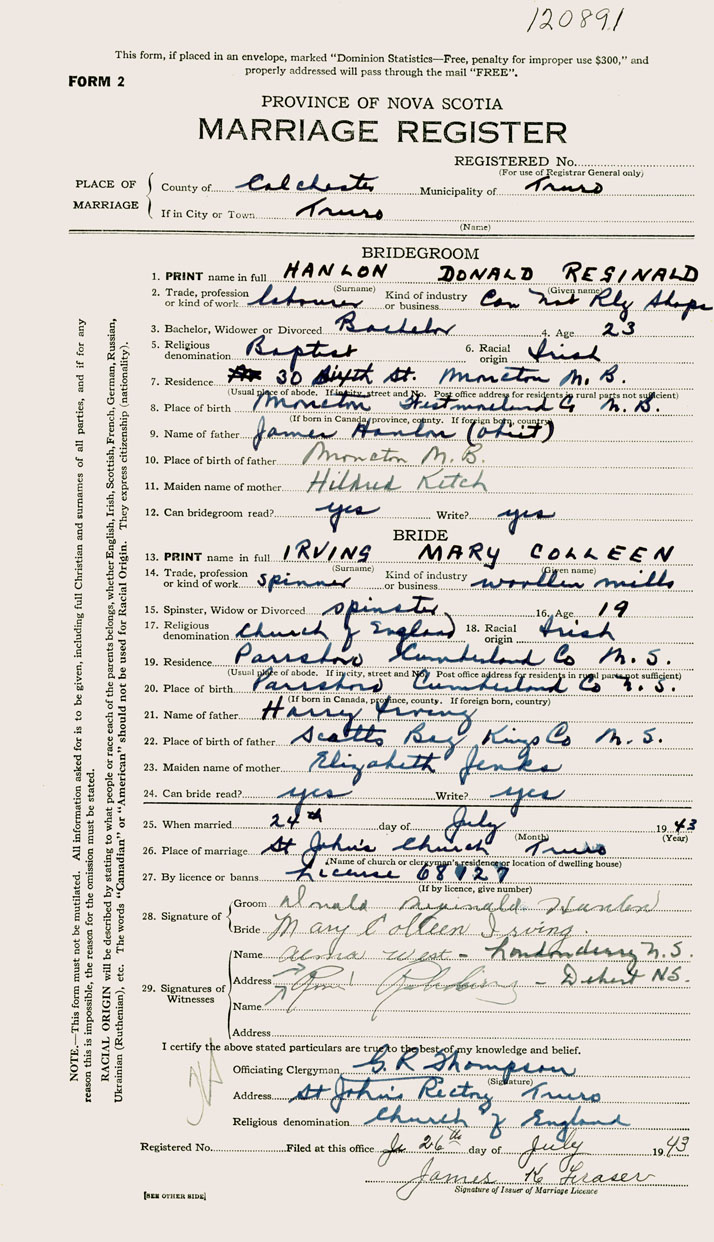 120891
This form, if placed in an envelope, marked "Dominion Statistics—Free, penalty for improper use $300," and
properly addressed will pass through the mail "FREE".
FORM 2
PROVINCE OF NOVA SCOTIA
MARRIAGE REGISTER
REGISTERED No.
(For use of Registrar General only)
PLACE OF MARRIAGE
County of Colchester Municipality of Truro
If in City or Town Truro
(Name)
BRIDEGROOM
1. PRINT name in full HANLON DONALD REGINALD
(Surname) (Given name)
2. Trade, profession or kind of work labourer Kind of industry or business Can Nat Rly Shops
3. Bachelor, Widower or Divorced Bachelor 4. Age 23
5. Religious denomination Baptist 6. Racial origin Irish
7. Residence 30 Sixth St. Moncton N. B.
(Usual place of abode. If in city, street and No. Post office address for residents in rural parts not sufficient)
8. Place of birth Moncton Westmoreland Co N. B.
(If born in Canada, province, county. If foreign born, country)
9. Name of father James Hanlon (obiit)
10. Place of birth of father Moncton N. B.
11. Maiden name of mother Hildred Ketch
12. Can bridegroom read? yes Write? yes
BRIDE
13. PRINT name in full IRVING MARY COLLEEN
(Surname) (Given name)
14. Trade, profession or kind of work spinner Kind of industry or business woollen mills
15. Spinster, Widow or Divorced spinster 16. Age 19
17. Religious denomination Church of England 18. Racial origin Irish
19. Residence Parrsboro Cumberland Co N. S.
(Usual place of abode. If in city, street and No. Post office address for residents in rural parts not sufficient)
20. Place of birth Parrsboro Cumberland Co N. S.
(If born in Canada, province, county. If foreign born, country)
21. Name of father Harry Irving
22. Place of birth of father Scotts Bay Kings Co N. S.
23. Maiden name of mother Elizabeth Jenks
24. Can bride read? yes Write? yes
25. When married 24th day of July 1943
(Month) (Year)
26. Place of marriage St John's Church Truro
(Name of church or clergyman's residence or location of dwelling house)
27. By licence or banns License 68127
(If by licence, give number)
28. Signature of
Groom Donald Reginald Hanlon
Bride Mary Colleen Irving.
29. Signatures of Witnesses
Name Alma West - Londonderry N. S.
Address - Debert NS.
Name
Address
I certify the above stated particulars are true to the best of my knowledge and belief.
Officiating Clergyman G. R Thompson
(Signature)
Address St John's Rectory Truro
Religious denomination Church of England
Registered No. Filed at this office 26th day of July 1943
James K Fraser
Signature of Issuer of Marriage Licence
[SEE OTHER SIDE]
NOTE.—This form must not be mutilated. All information asked for is to be given, including full Christian and surnames of all parties, and if for any
reason this is impossible, the reason for the omission must be stated.
RACIAL ORIGIN will be described by stating to what people or race each of the parents belongs, whether English, Irish, Scottish, French, German, Russian,
Ukrainian (Ruthenian), etc. The words "Canadian" or "American" should not be used for Racial Origin. They express citizenship (nationality).